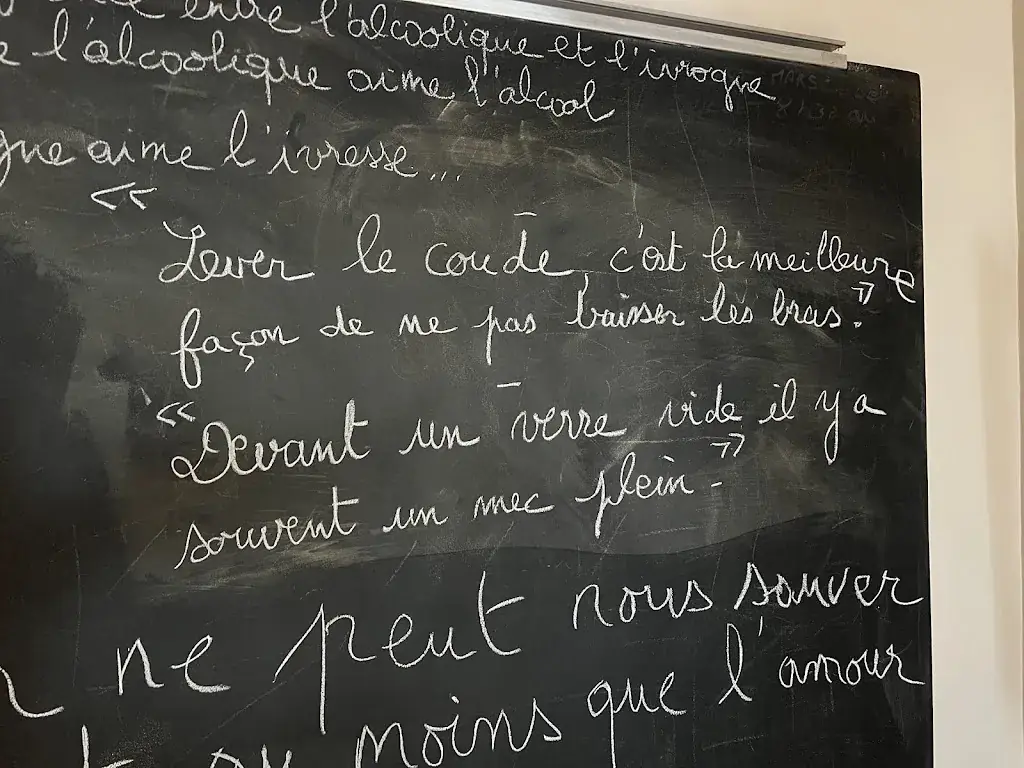 entre l'alcoolique et l'ivrogne
l'alcoolique aime l'alcool
aime l'ivresse...
« Lever le coude, c'est la meilleure
façon de ne pas baisser les bras. »
« Devant un verre vide il y a
souvent un mec plein - »
ne peut nous sauver
moins que l'amour